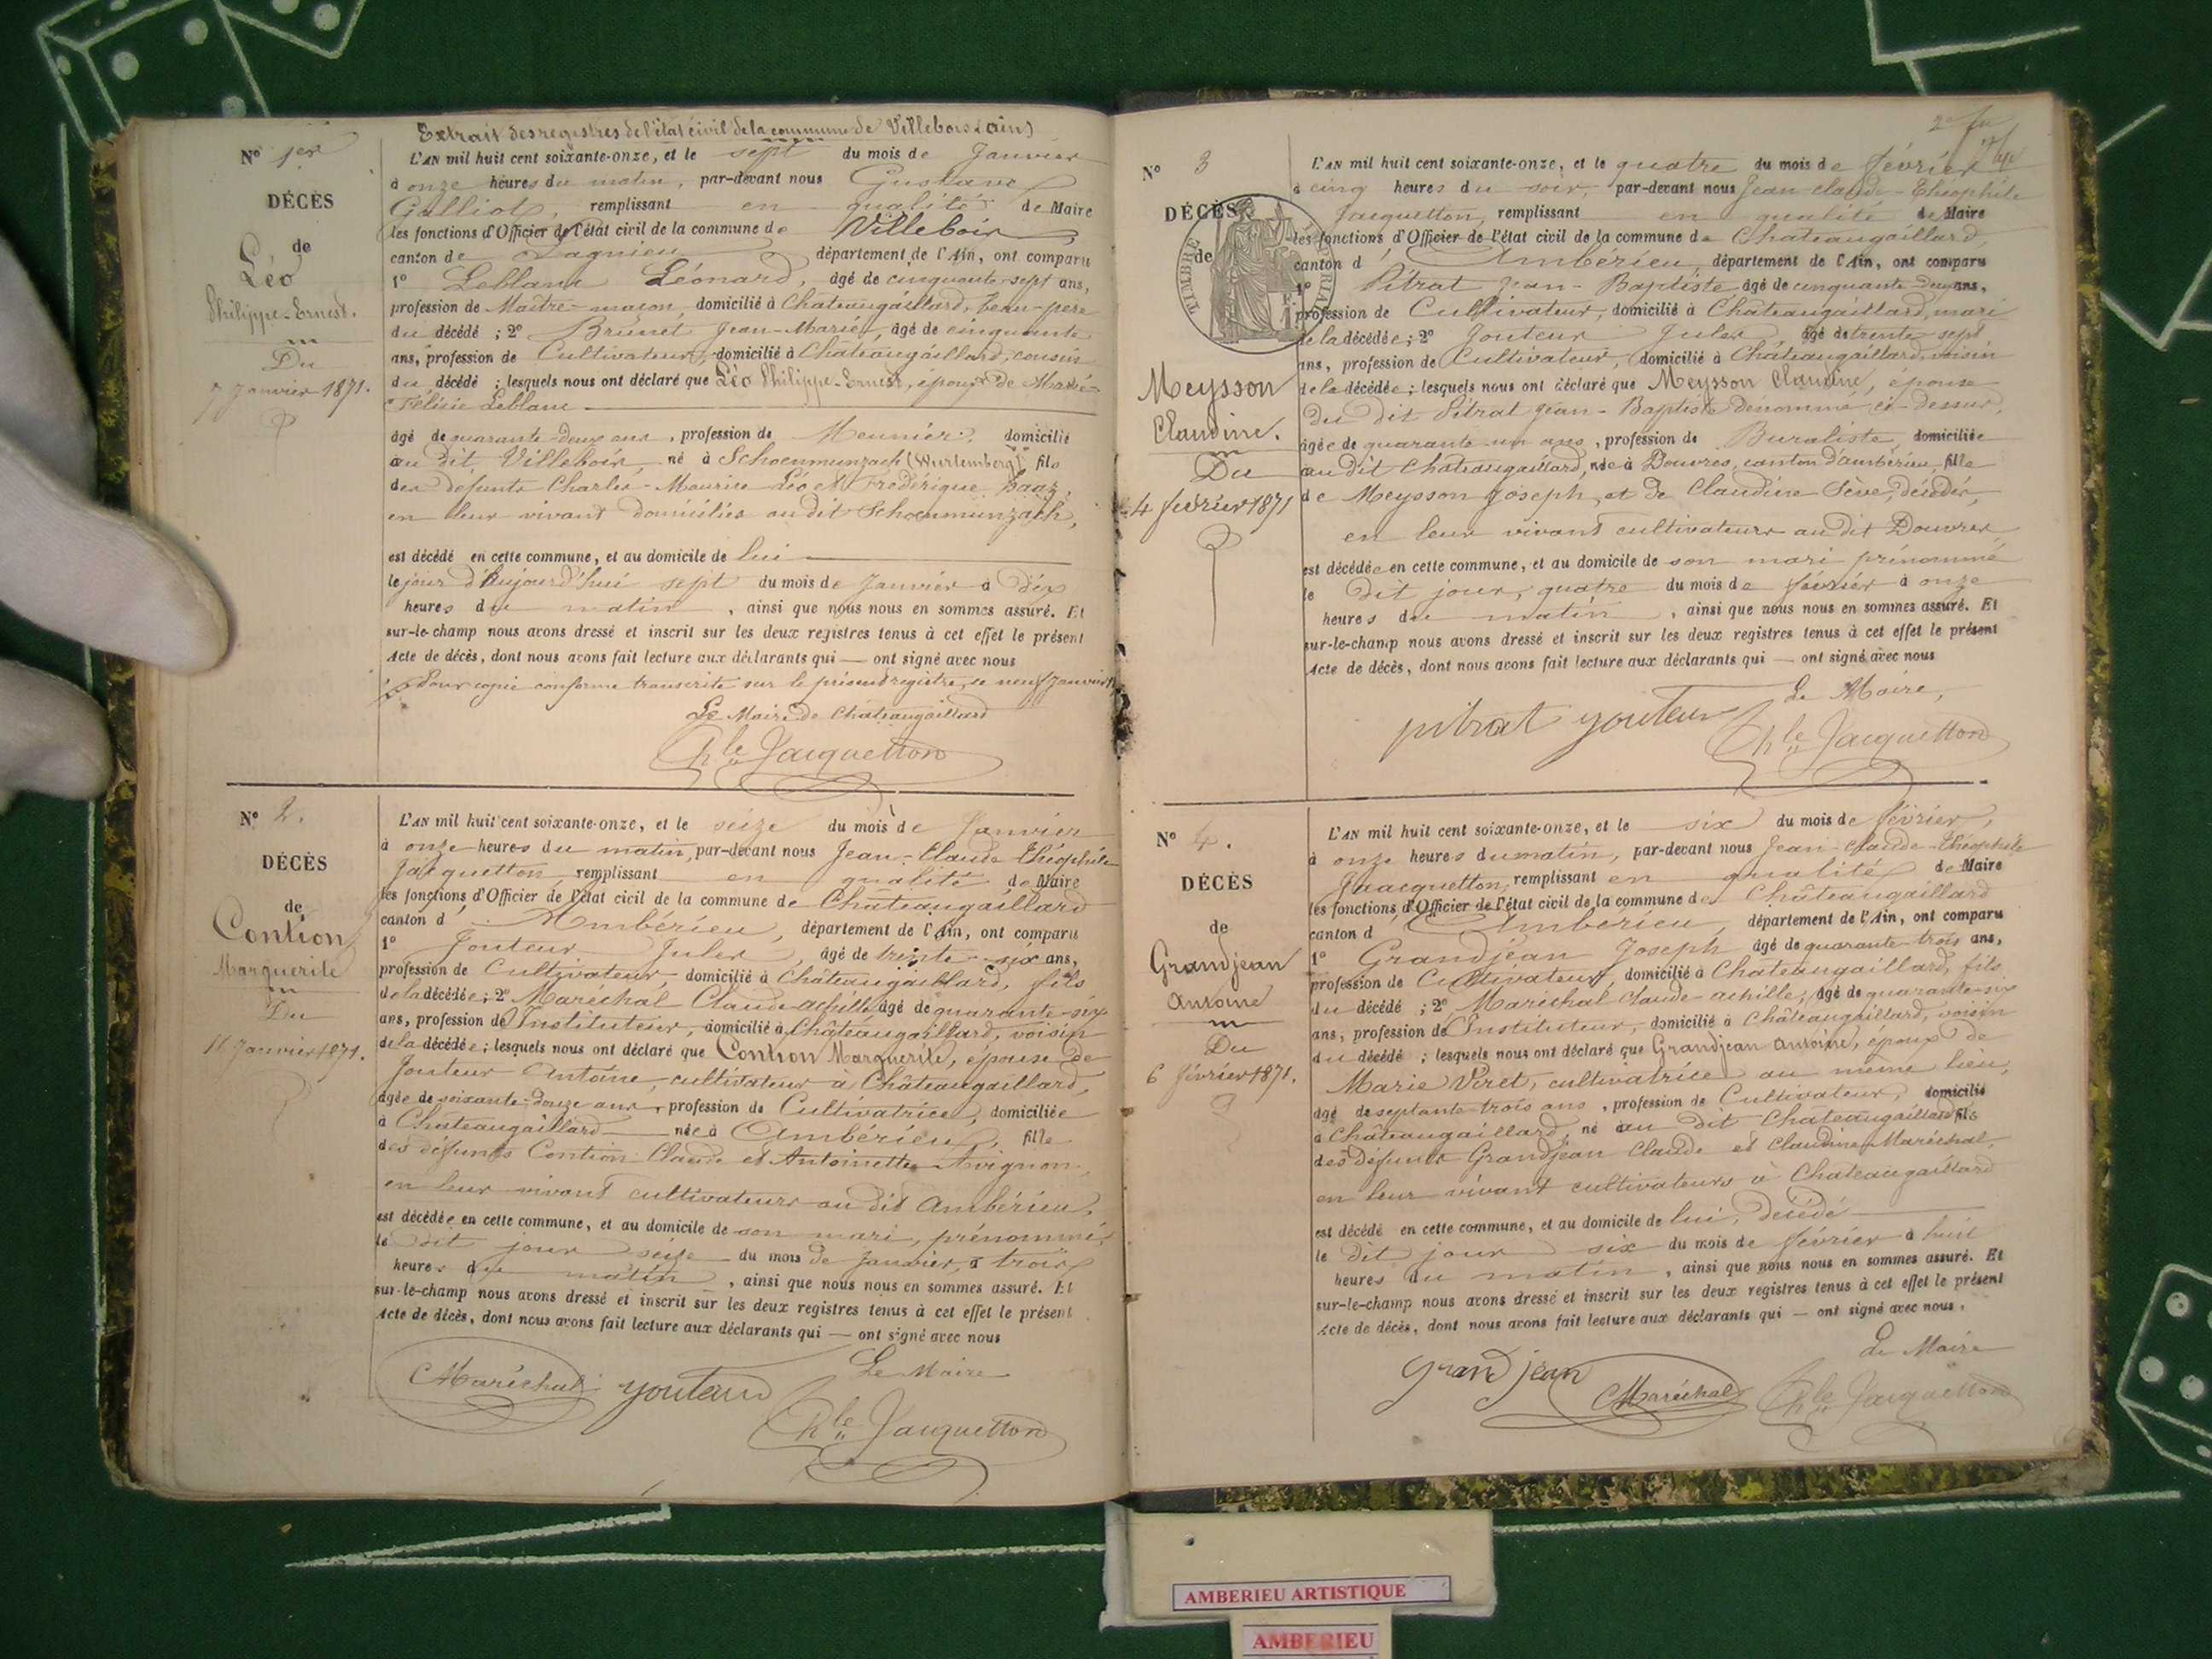 Extrait des registres de l'état civil de la commune de Villebois (ain)
N° 1er
DÉCÈS
de
Léo
Philippe-Ernest.
Du
7 Janvier 1871.
L'AN mil huit cent soixante-onze, et le sept du mois de Janvier
à onze heures du matin, par-devant nous Gustave
Galliot, remplissant en qualité de Maire
les fonctions d'Officier de l'état civil de la commune de Villebois
canton de Lagnieu département de l'Ain, ont comparu
1° Leblanc Léonard, âgé de cinquante-sept ans,
profession de Maître-maçon, domicilié à Chateaugaillard, beau-père
du décédé ; 2° Brunet Jean-Marie, âgé de cinquante
ans, profession de Cultivateur, domicilié à Châteaugaillard, cousin
du décédé ; lesquels nous ont déclaré que Léo Philippe-Ernest, époux de Marie-
Félisie Leblanc
âgé de quarante-deux ans, profession de Meunier, domicilié
au dit Villebois, né à Schoenmunzach (Wurtemberg) fils
des défunts Charles-Maurice Léo et Frédérique Haag,
en leur vivant domiciliés au dit Schoenmunzach,
est décédé en cette commune, et au domicile de lui
le jour d'aujourd'hui sept du mois de Janvier à dix
heures du matin, ainsi que nous nous en sommes assuré. Et
sur-le-champ nous avons dressé et inscrit sur les deux registres tenus à cet effet le présent
Acte de décès, dont nous avons fait lecture aux déclarants qui — ont signé avec nous
Pour copie conforme transcrite sur le présent registre, ce neuf Janvier
Le Maire de Châteaugaillard
Thle Jacquetton
N° 2.
DÉCÈS
de
Contion
Marguerite
Du
16 Janvier 1871.
L'AN mil huit cent soixante-onze, et le seize du mois de Janvier
à onze heures du matin, par-devant nous Jean-Claude Théophile
Jacquetton, remplissant en qualité de Maire
les fonctions d'Officier de l'état civil de la commune de Châteaugaillard
canton d'Ambérieu, département de l'Ain, ont comparu
1° Jouteur Jules, âgé de trente-six ans,
profession de Cultivateur, domicilié à Châteaugaillard, fils
de la décédée ; 2° Maréchal Claude-achille âgé de quarante-six
ans, profession de Instituteur, domicilié à Châteaugaillard, voisin
de la décédée ; lesquels nous ont déclaré que Contion Marguerite, épouse de
Jouteur Antoine, cultivateur à Châteaugaillard,
âgée de soixante-douze ans, profession de Cultivatrice, domiciliée
à Châteaugaillard née à Ambérieu, fille
des défunts Contion Claude et Antoinette Avignon,
en leur vivant cultivateurs au dit Ambérieu,
est décédée en cette commune, et au domicile de son mari, prénommé,
le dit jour seize du mois de Janvier, à trois
heures du matin, ainsi que nous nous en sommes assuré. Et
sur-le-champ nous avons dressé et inscrit sur les deux registres tenus à cet effet le présent
Acte de décès, dont nous avons fait lecture aux déclarants qui — ont signé avec nous
Le Maire
Maréchal youteur
Thle Jacquetton
N° 3
DÉCÈS
de
TIMBRE
Meysson
Claudine.
Du
4 février 1871
L'AN mil huit cent soixante-onze, et le quatre du mois de février
à cinq heures du soir, par-devant nous Jean-claude-Théophile
Jacquetton, remplissant en qualité de Maire
les fonctions d'Officier de l'état civil de la commune de Chateaugaillard,
canton d'Ambérieu, département de l'Ain, ont comparu
1° Pitrat Jean-Baptiste âgé de cinquante-deux ans,
profession de Cultivateur, domicilié à Châteaugaillard, mari
de la décédée ; 2° Jouteur Jules, âgé de trente-sept
ans, profession de Cultivateur, domicilié à Châteaugaillard, voisin
de la décédée ; lesquels nous ont déclaré que Meysson Claudine, épouse
du dit Pitrat Jean-Baptiste dénommé ci-dessus,
âgée de quarante-un ans, profession de Buraliste, domiciliée
au dit Châteaugaillard, née à Douvres, canton d'ambérieu, fille
de Meysson Joseph, et de Claudine Sève, décédés,
en leur vivant cultivateurs au dit Douvres
est décédée en cette commune, et au domicile de son mari prénommé
le dit jour, quatre du mois de février à onze
heures du matin, ainsi que nous nous en sommes assuré. Et
sur-le-champ nous avons dressé et inscrit sur les deux registres tenus à cet effet le présent
Acte de décès, dont nous avons fait lecture aux déclarants qui — ont signé avec nous
Le Maire,
pitrat youteur
Thle Jacquetton
N° 4.
DÉCÈS
de
Grandjean
Antoine
Du
6 février 1871.
L'AN mil huit cent soixante-onze, et le six du mois de février,
à onze heures du matin, par-devant nous Jean-claude-Théophile
Jaacquetton, remplissant en qualité de Maire
les fonctions d'Officier de l'état civil de la commune de Châteaugaillard
canton d'Ambérieu, département de l'Ain, ont comparu
1° Grandjean Joseph âgé de quarante-trois ans,
profession de Cultivateur, domicilié à Chateaugaillard, fils
du décédé ; 2° Maréchal claude-achille, âgé de quarante-six
ans, profession de Instituteur, domicilié à Châteaugaillard, voisin
du décédé ; lesquels nous ont déclaré que Grandjean Antoine, époux de
Marie Viret, cultivatrice au même lieu,
âgé de septante-trois ans, profession de Cultivateur, domicilié
à Châteaugaillard, né au dit Chateaugaillard fils
des défunts Grandjean Claude et Claudine Maréchal,
en leur vivant cultivateurs à Chateaugaillard
est décédé en cette commune, et au domicile de lui, décédé
le dit jour six du mois de février à huit
heures du matin, ainsi que nous nous en sommes assuré. Et
sur-le-champ nous avons dressé et inscrit sur les deux registres tenus à cet effet le présent
Acte de décès, dont nous avons fait lecture aux déclarants qui — ont signé avec nous.
Le Maire
Grandjean
Maréchal Thle Jacquetton
AMBERIEU ARTISTIQUE
AMBERIEU